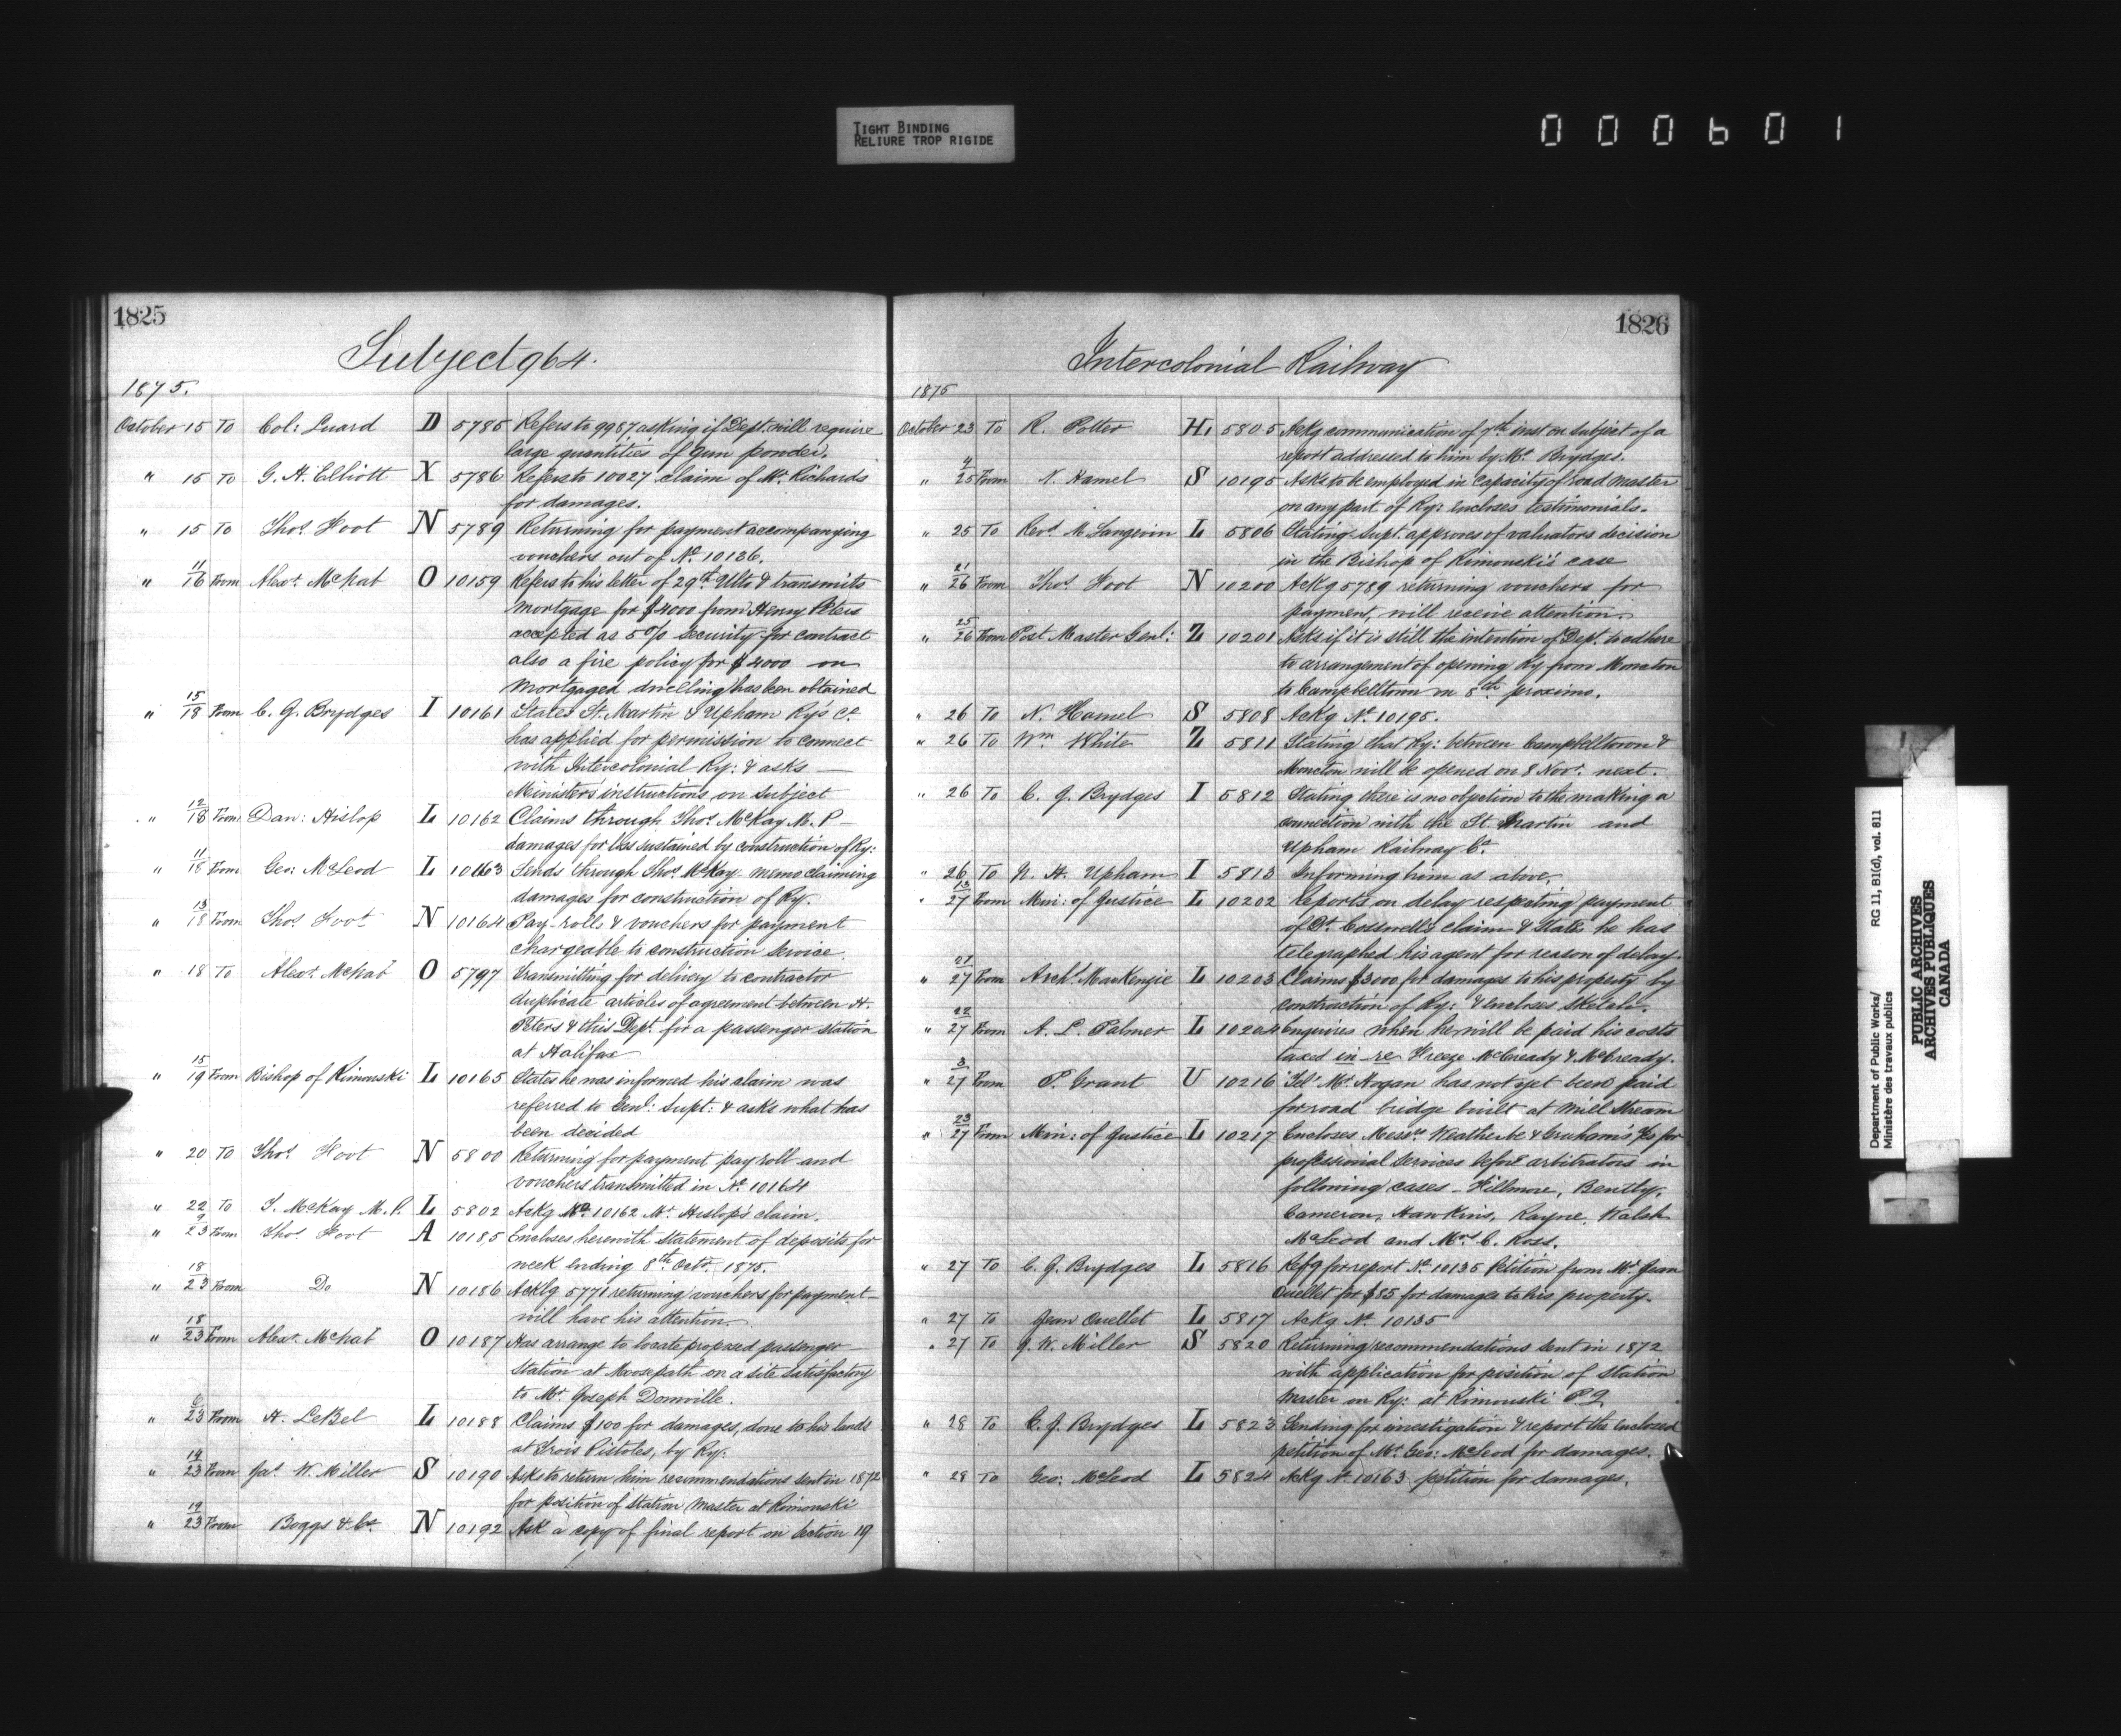 TIGHT BINDING
RELIURE TROP RIGIDE
000601
1825
Subject 964.
1875.
October 15 To Col: Luard D 5785 Refers to 9987 asking if Dept. will require
large quantities of Gun powder.
" 15 To G. H. Elliott X 5786 Refers to 10027 claim of Mr. Richards
for damages.
" 15 To Thos. Foot N 5789 Returning for payment accompanying
vouchers out of No. 10136.
" 11/16 From Alexr. McNab O 10159 Refers to his letter of 29th Ulto & transmits
mortgage for $4000 from Henry Peters
accepted as 5% security for contract
also a fire policy for $4000 on
mortgaged dwelling has been obtained
" 15/18 From C. J. Brydges I 10161 States St. Martin & Upham Ry's Co.
has applied for permission to connect
with Intercolonial Ry: & asks
Minister's instructions on subject
" 12/18 From Dan: Hislop L 10162 Claims through Thos. McKay M. P.
damages for loss sustained by construction of Ry:
" 11/18 From Geo: McLeod L 10163 Sends through Thos. McKay memo claiming
damages for construction of Ry.
" 13/18 From Thos. Foot N 10164 Pay-rolls & vouchers for payment
chargeable to construction service.
" 18 To Alexr. McNab O 5797 Transmitting for delivery to contractor
duplicate articles of agreement between H.
Peters & this Dept. for a passenger station
at Halifax
" 15/19 From Bishop of Rimouski L 10165 States he was informed his claim was
referred to Genl: Supt: & asks what has
been decided
" 20 To Thos. Foot N 5800 Returning for payment pay roll and
vouchers transmitted in No. 10164
" 22 To T. McKay M. P. L 5802 Ackg No. 10162 Mr. Hislop's claim.
" 9/23 From Thos. Foot A 10185 Encloses herewith statement of deposits for
week ending 8th Octr. 1875.
" 18/23 From Do N 10186 Acklg 5771 returning vouchers for payment
will have his attention.
" 18/23 From Alexr. McNab O 10187 Has arrange to locate proposed passenger
station at Moosepath on a site satisfactory
to Mr. Joseph Domville.
" 6/23 From H. LeBel L 10188 Claims $100 for damages, done to his lands
at Trois Pistoles, by Ry:
" 14/23 From Jas. W. Miller S 10190 Asks to return him recommendations sent in 1872
for position of Station Master at Rimouski
" 19/23 From Boggs & Co. N 10192 Ask a copy of final report on Section 19
1826
Intercolonial Railway
1875
October 23 To R. Potter H 5805 Ackg communication of 7th inst on subject of a
report addressed to him by Mr. Brydges.
" 4/25 From N. Hamel S 10195 Asks to be employed in capacity of road master
on any part of Ry: encloses testimonials.
" 25 To Revd. M Langevin L 5806 Stating Supt. approves of valuators decision
in the Bishop of Rimouski's case
" 21/26 From Thos. Foot N 10200 Ackg 5789 returning vouchers for
payment, will receive attention.
" 25/26 From Post Master Genl: Z 10201 Asks if it is still the intention of Dept. to adhere
to arrangement of opening Ry from Moncton
to Campbelltown on 8th proximo.
" 26 To N. Hamel S 5808 Ackg No. 10195.
" 26 To Wm. White Z 5811 Stating that Ry: between Campbelltown &
Moncton will be opened on 8 Novr. next.
" 26 To C. J. Brydges I 5812 Stating there is no objection to the making a
connection with the St. Martin and
Upham Railway Co.
" 26 To N. H. Upham I 5813 Informing him as above.
" 13/27 From Min: of Justice L 10202 Reports on delay respecting payment
of Dr. Cosswell's claim & State he has
telegraphed his agent for reason of delay.
" 21/27 From Archd. MacKenzie L 10203 Claims $3000 for damages to his property by
construction of Ry: & encloses Sketch.
" 22/27 From A. L. Palmer L 10204 Enquires when he will be paid his costs
taxed in re Freeze McCready & McCready.
" 3/27 From P. Grant U 10216 Tels. Mr. Hogan has not yet been paid
for road bridge built at Mill Stream
" 23/27 From Min: of Justice L 10217 Encloses Messrs. Weatherbe & Graham's for
professional services before arbitrators in
following cases - Fillmore, Bently,
Cameron, Hawkins, Rayne, Walsh
McLeod and Mrs. C. Ross.
" 27 To C. J. Brydges L 5816 Refg for report No. 10135 Petition from Mr. Jean
Ouellet for $85 for damages to his property.
" 27 To Jean Ouellet L 5817 Ackg No. 10135
" 27 To J. W. Miller S 5820 Returning recommendations sent in 1872
with application for position of Station
Master on Ry: at Rimouski P.Q.
" 28 To C. J. Brydges L 5823 Sending for investigation & report the enclosed
petition of Mr. Geo: McLeod for damages.
" 28 To Geo: McLeod L 5824 Ackg No. 10163 petition for damages.
Department of Public Works/ RG 11, B1(d), vol. 811
Ministère des travaux publics
PUBLIC ARCHIVES
ARCHIVES PUBLIQUES
CANADA